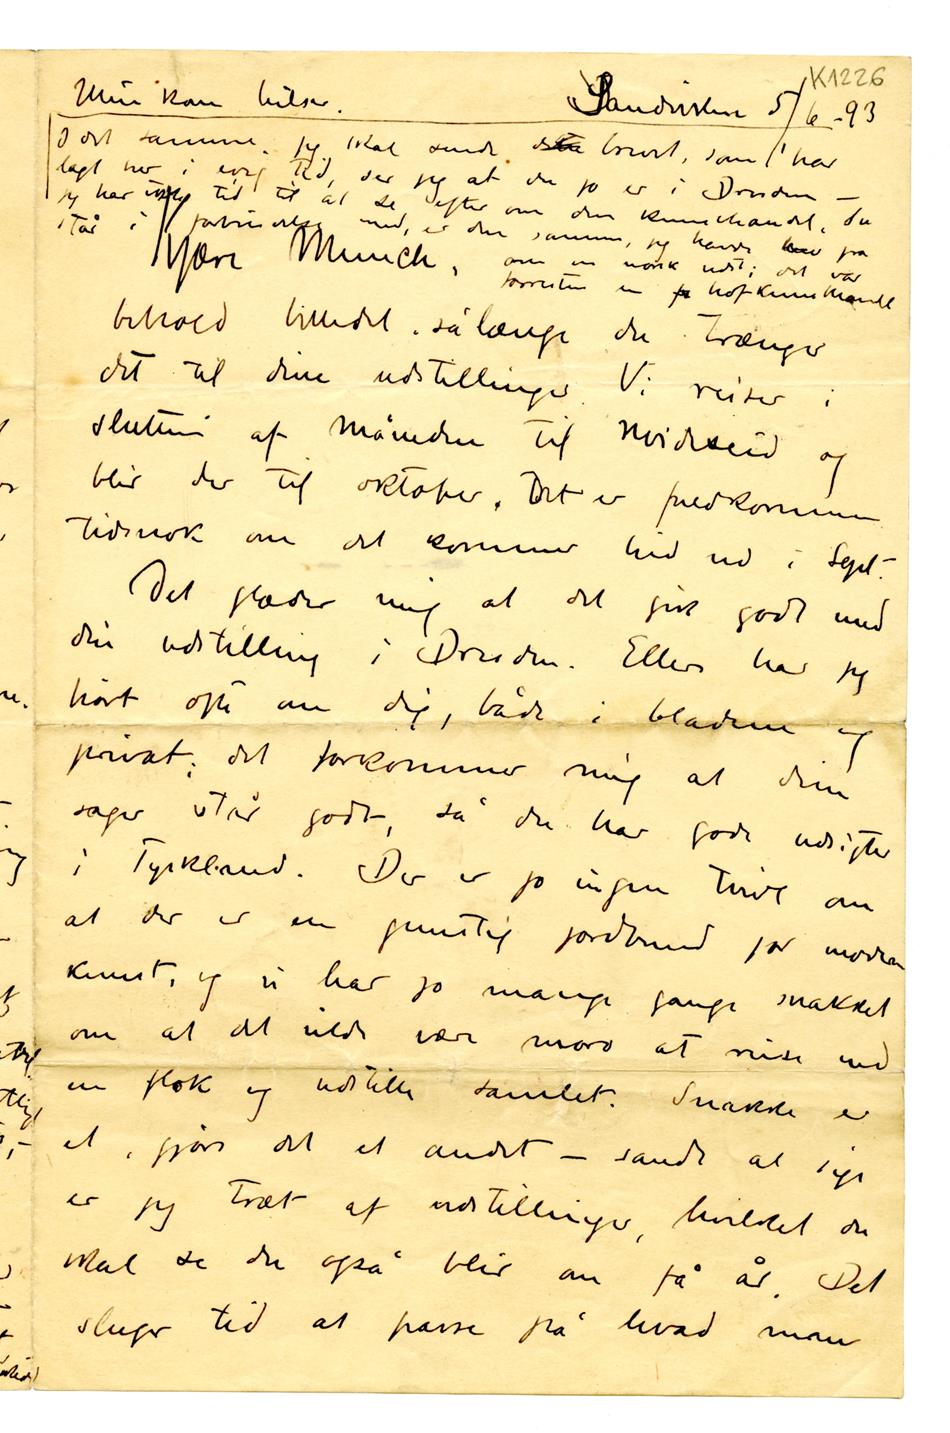 K1226
Min kone hilser. Sandviken 5/6 - 93
I det samme jeg skal sende brevet, som har
lagt her i evig tid, ser jeg at du jo er i Dresden –
jeg har ikke tid til at se efter om den kunsthandel, du
står i forbindelse med, er den samme, jeg havde fra
om en norsk udst; det var
forresten en hofkunsthandl
Kjære Munch,
behold billedet sålænge du trænger
det til dine udstillinger. Vi reiser i
slutten af måneden til Hvideseid og
blir der til oktober. Det er fuldkommen
tidsnok om det kommer hid ud i Sept.
Det glæder mig at det gik godt med
din udstilling i Dresden. Ellers har jeg
hørt ofte om dig, både i bladene og
privat; det forkommer mig at dine
sager står godt, så du har gode udsigter
i Tyskland. Der er jo ingen tvivl om
at der er en gunstig jordbund for modern
kunst, og vi har jo mange gange snakket
om at det vilde være moro at reise ned
en flok og udstille samlet. Snakke er
et, gjøre det et andet – sandt at sige
er jeg træt af udstillinger, hvilket du
skal se du også blir om få år. Det
sluger tid at passe på hvad man